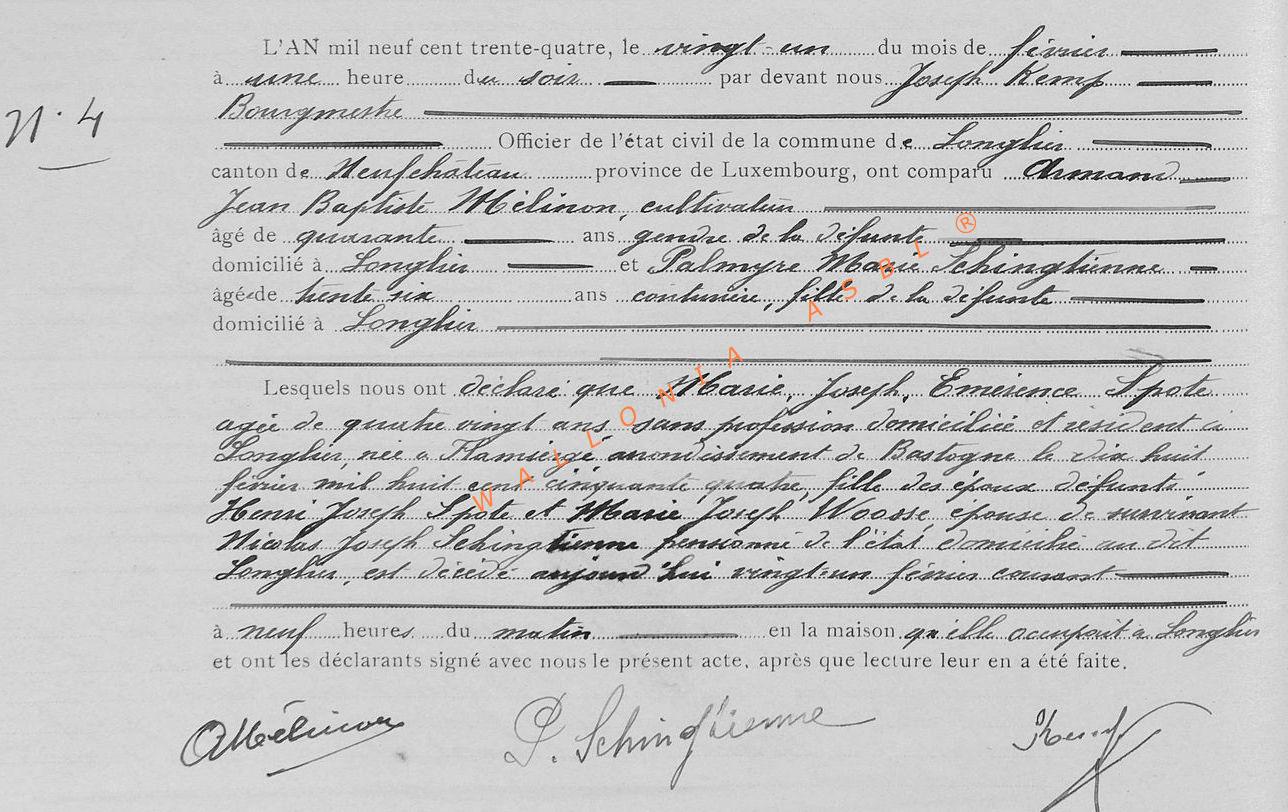 L'AN mil neuf cent trente-quatre, le vingt-un du mois de février
à une heure du soir par devant nous Joseph Kemp
Bourgmestre
N. 4
Officier de l'état civil de la commune de Longlier
canton de Neufchâteau province de Luxembourg, ont comparu Armand
Jean Baptiste Mélinon, cultivateur
âgé de quarante ans gendre de la défunte
domicilié à Longlier et Palmyre Marie Schingtienne
âgé de trente six ans couturière, fille de la défunte
domicilié à Longlier
Lesquels nous ont déclaré que Marie, Joseph, Emérence Spote
agée de quatre vingt ans sans profession domiciliée et résident à
Longlier, née a Flamierge arrondissement de Bastogne le dix huit
février mil huit cent cinquante quatre, fille des époux défunts
Henri Joseph Spote et Marie Joseph Woosse, épouse de survivant
Nicolas Joseph Schingtienne pensionné de l'état domicilié au dit
Longlier, est décédé aujourd'hui vingt-un février courant
à neuf heures du matin en la maison qu'elle occupait a Longlier
et ont les déclarants signé avec nous le présent acte, après que lecture leur en a été faite.
AMélinon P. Schingtienne JKemp
WALLONIA ASBL ®